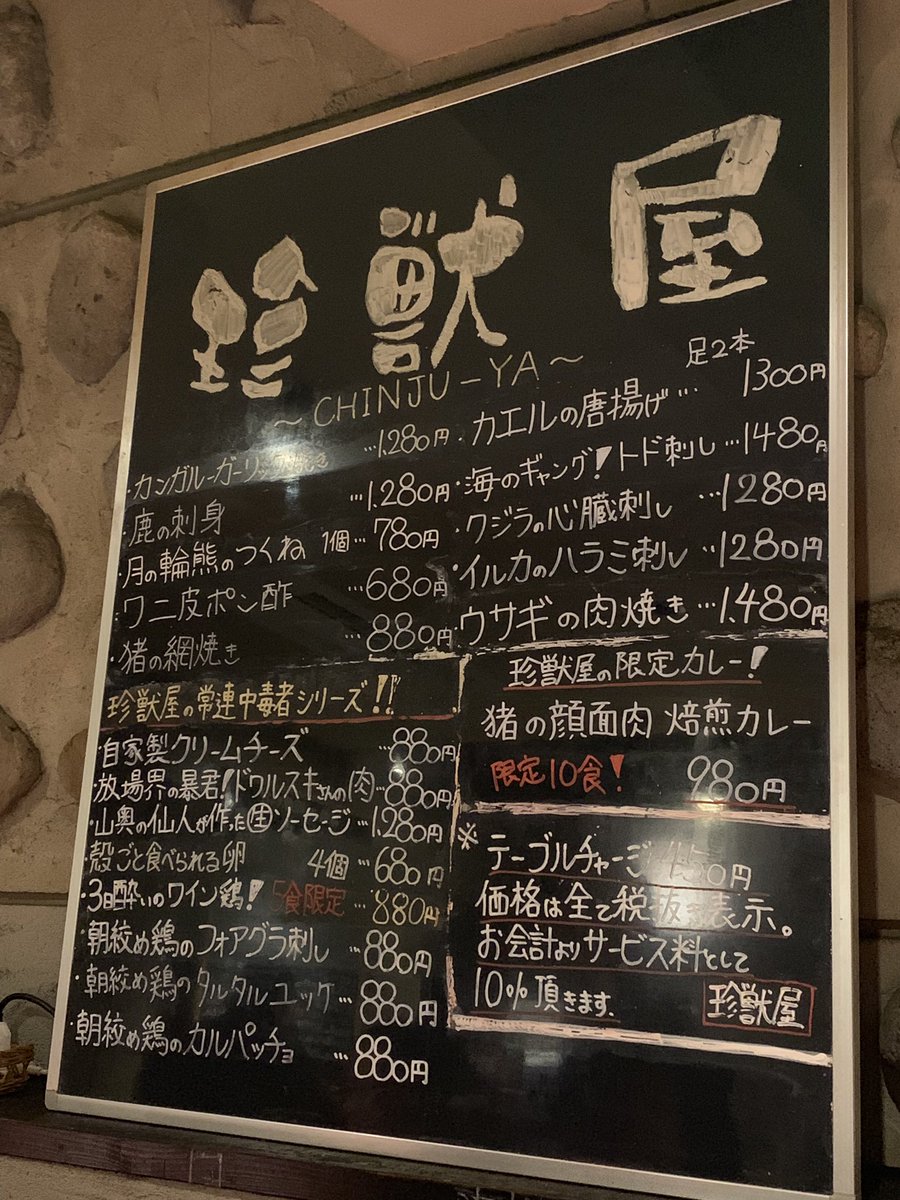 珍獣屋
～CHINJU-YA～
・カンガルーガーリック焼き …1,280円
・鹿の刺身 …1,280円
・月の輪熊のつくね 1個…780円
・ワニ皮ポン酢 …680円
・猪の網焼き …880円
足2本
・カエルの唐揚げ… 1300円
・海のギャング!トド刺し…1480円
・クジラの心臓刺し …1280円
・イルカのハラミ刺し …1280円
・ウサギの肉焼き…1,480円
珍獣屋の常連中毒者シリーズ!!
・自家製クリームチーズ …880円
・放場界の暴君!ドゥルスキさんの肉…880円
・山奥の仙人が作った生ソーセージ…1,280円
・殻ごと食べられる卵 4個…680円
・3日酔いのワイン鶏! 5食限定…880円
・朝絞め鶏のフォアグラ刺し …880円
・朝絞め鶏のタルタルユッケ…880円
・朝絞め鶏のカルパッチョ …880円
珍獣屋の限定カレー!
猪の顔面肉 焙煎カレー
限定10食! 980円
※テーブルチャージ450円
価格は全て税抜き表示。
お会計よりサービス料として
10%頂きます。
珍獣屋